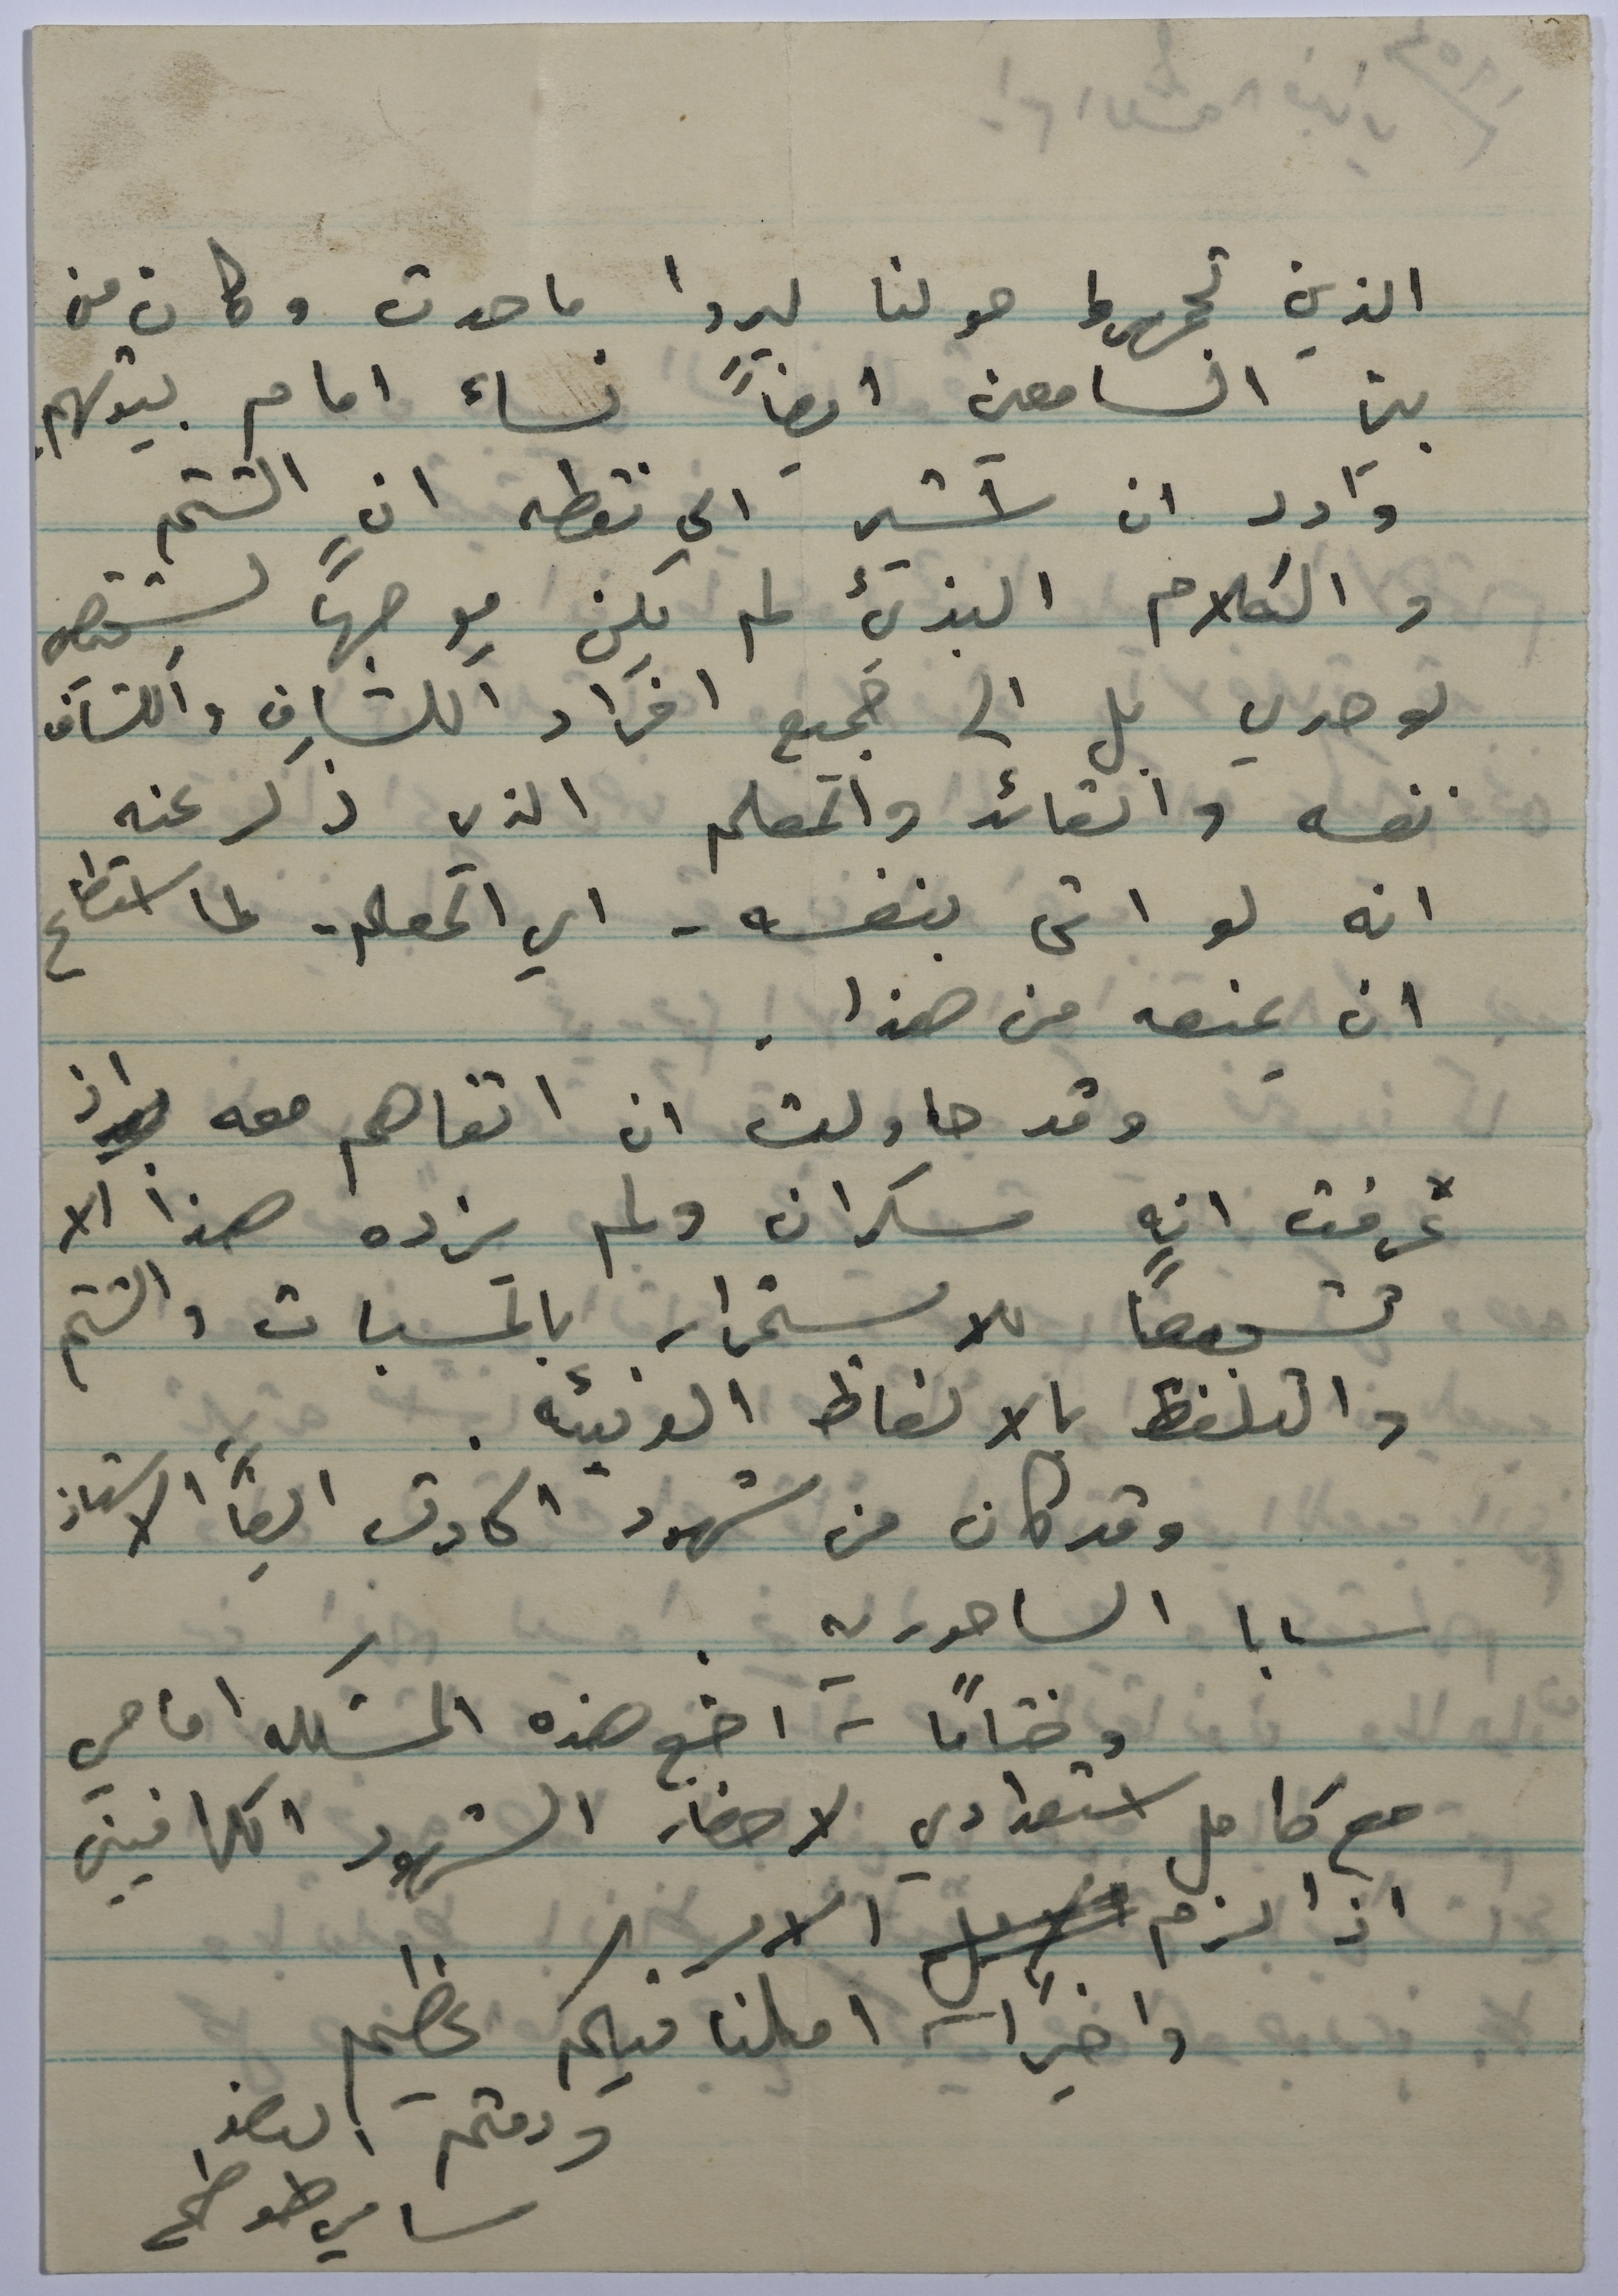 الذين تجمهروا حولنا ليروا ما حدث وكان من
بين السامعين ايضاً نساء امام بيوتهم.
وأود ان أشير الى نقطه ان الشتم
والكلام البذئ لم يكن موجهاً لشخص
لوحدي بل الى جميع افراد الكشاف والكشاف
نفسه والقائد والمعلم الذي ذكر عنه
انه لو اتى بنفسه - اي المعلم - لما استطاع
ان يمنعه من هذا.
وقد حاولت ان اتفاهم معه اذ
عرفت انه سكران ولم يزده هذا الا
تشجيعاً للاستمرار بالمسبات والشتم
والتلفظ بالالفاظ الدنيئه.
وقد كان من شهود الحادث ايضاً الاستاذ
سابا الساحوريه.
وختاماً - اضع هذه المشكله امامكم
مع كامل استعدادي لاحضار الشهود الكافيين
اذا لزم الامر.
واخيراً - املنا فيكم عظيم
ودمتم
سامي